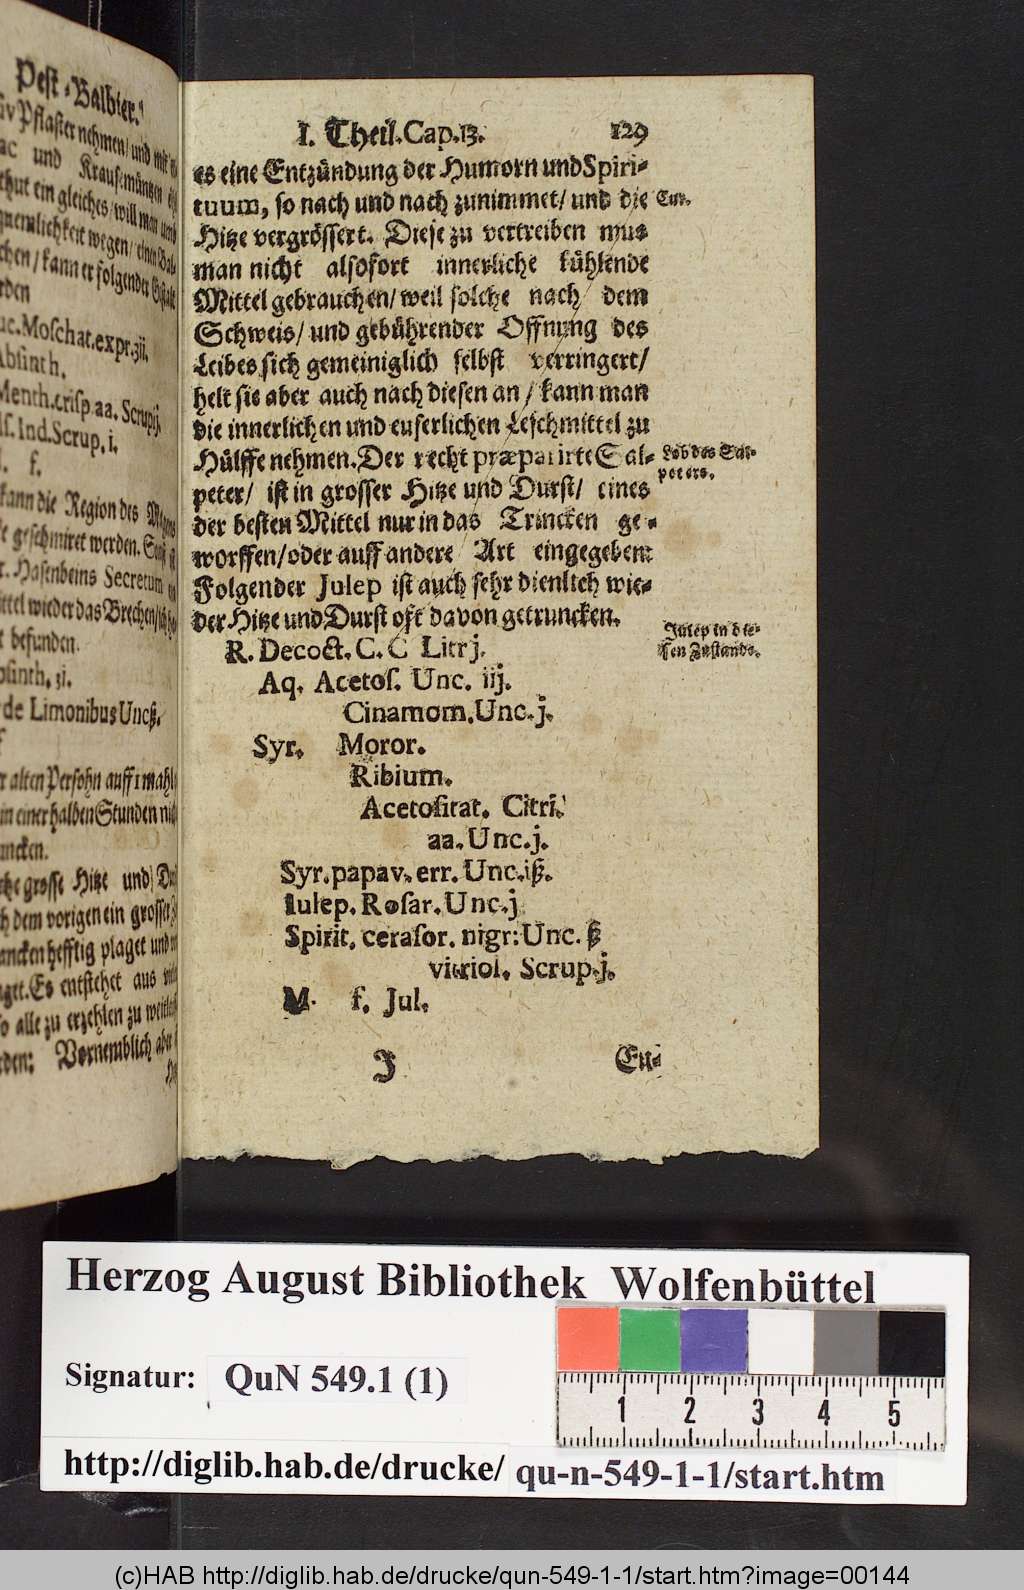 Pest-Balbier.
Pflaster nehmen/ und mit
und Krausemüntzen
thut ein gleiches/ will man und
wegen/ einen Bal-
kann er folgender Gestalt
rden
uc. Moschat. expr. ʒii.
Absinth.
Menth. crisp aa. Scrupij.
Ind. Scrup. i.
f.
kann die Region des Magens
geschmiret werden.
Hasenbeins Secretum
ittel wieder das Brechen/
befunden.
sinth. ʒi.
de Limonibus Uncß.
f
alten Persohn auff 1 mahl
in einer halben Stunden
uncken.
grosse Hitze und
dem vorigen ein grosser
ancken hefftig plaget und
Es entstehet aus
so alle zu erzehlen zu
rden: Vornemblich aber
I. Theil. Cap. 13. 129
es eine Entzündung der Humorn und Spiri-
tuum, so nach und nach zunimmet/ und die Cur.
Hitze vergrössert. Diese zu vertreiben mus
man nicht alsofort innerliche kühlende
Mittel gebrauchen/ weil solche nach dem
Schweis/ und gebührender Offnung des
Leibes sich gemeiniglich selbst verringert/
helt sie aber auch nach diesen an/ kann man
die innerlichen und euserlichen Leschmittel zu
Hülffe nehmen. Der recht præparirte Sal- Lob des Sal-
peter/ ist in grosser Hitze und Durst/ eines peters.
der besten Mittel nur in das Trincken ge-
worffen/ oder auff andere Art eingegeben:
Folgender Julep ist auch sehr dienlich wie-
der Hitze und Durst oft davon getruncken.
Julep in die-
sen Zustande.
R. Decoct. C. C Litr j.
Aq. Acetos. Unc. iij.
Cinamom. Unc. j.
Syr. Moror.
Ribium.
Acetositat. Citri.
aa. Unc. j.
Syr. papav. err. Unc. iß.
Iulep. Rosar. Unc. j
Spirit. cerasor. nigr: Unc. ß
vitriol. Scrup. j.
M. f. Jul.
J En-
Herzog August Bibliothek Wolfenbüttel
Signatur: QuN 549.1 (1)
1 2 3 4 5
http://diglib.hab.de/drucke/ qu-n-549-1-1/start.htm
(c)HAB http://diglib.hab.de/drucke/qun-549-1-1/start.htm?image=00144